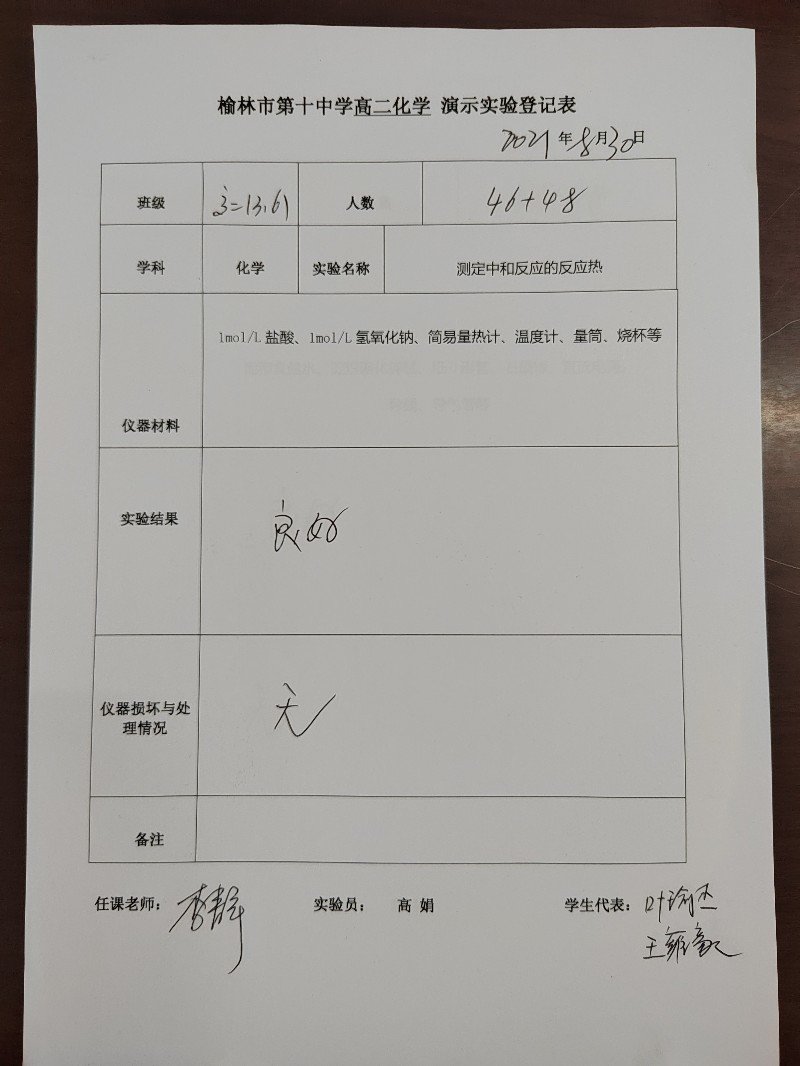 榆林市第十中学高二化学 演示实验登记表
2021年8月30日
班级 高二13、61 人数 46+48
学科 化学 实验名称 测定中和反应的反应热
仪器材料 1mol/L盐酸、1mol/L氢氧化钠、简易量热计、温度计、量筒、烧杯等
实验结果 良好
仪器损坏与处
理情况 无
备注
任课老师： 李静 实验员： 高娟 学生代表： 叶瑜杰
王雍